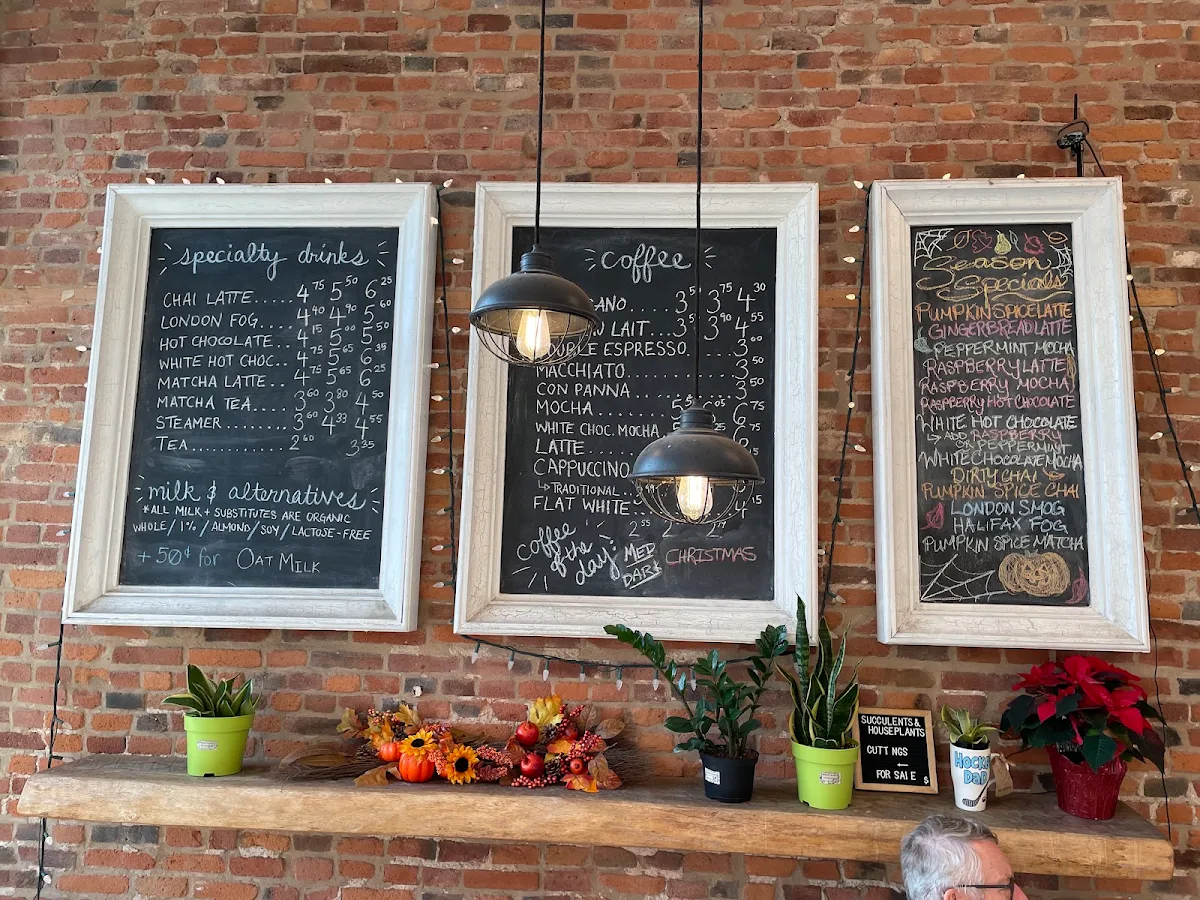 specialty drinks
CHAI LATTE..... 4.75 5.50 6.25
LONDON FOG.... 4.40 4.90 5.60
HOT CHOCOLATE. 4.15 5.00 5.50
WHITE HOT CHOC.. 4.75 5.65 6.35
MATCHA LATTE... 4.75 5.65 6.25
MATCHA TEA.... 3.60 3.80 4.50
STEAMER....... 3.60 4.33 4.55
TEA............ 2.60 3.35
milk & alternatives
*ALL MILK + SUBSTITUTES ARE ORGANIC
WHOLE/1%/ALMOND/SOY/LACTOSE-FREE
+50¢ for OAT MILK
coffee
3.75 4.30
LAIT.. 3.90 4.55
ESPRESSO. 3.00
MACCHIATO 3.50
CON PANNA 3.50
MOCHA 6.75
WHITE CHOC. MOCHA
LATTE
CAPPUCCINO
↳TRADITIONAL
FLAT WHITE
coffee of the day!
MED
DARK
CHRISTMAS
Season Specials
PUMPKIN SPICE LATTE
GINGERBREAD LATTE
PEPPERMINT MOCHA
RASPBERRY LATTE
RASPBERRY MOCHA
RASPBERRY HOT CHOCOLATE
WHITE HOT CHOCOLATE
↳ ADD RASPBERRY
OR PEPPERMINT
WHITE CHOCOLATE MOCHA
DIRTY CHAI
PUMPKIN SPICE CHAI
LONDON SMOG
HALIFAX FOG
PUMPKIN SPICE MATCHA
SUCCULENTS &
HOUSEPLANTS
CUTT NGS
←
FOR SALE $
DAD